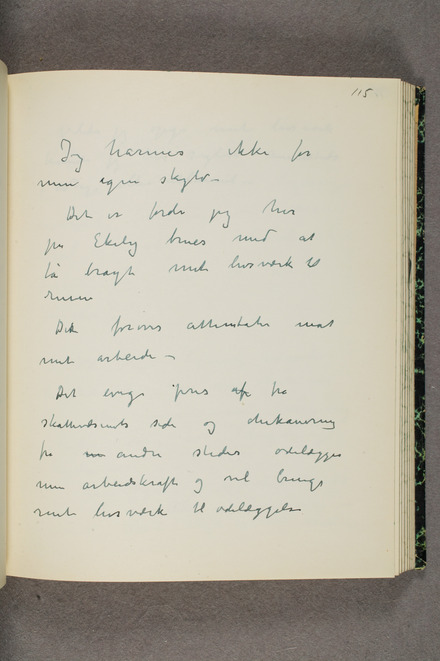 115
Jeg harmes ikke for
min egen skyld –
Det er fordi jeg her
på Ekely trues med at
få bragt mit livsværk til
ruin
Det forøves attentater mot
mit arbeide –
Det evige pres fra
skattevæsnets side og chikanering
fra andre steder ødelægger
min arbeidskraft og vil bringe
mit livsværk til ødelæggelse